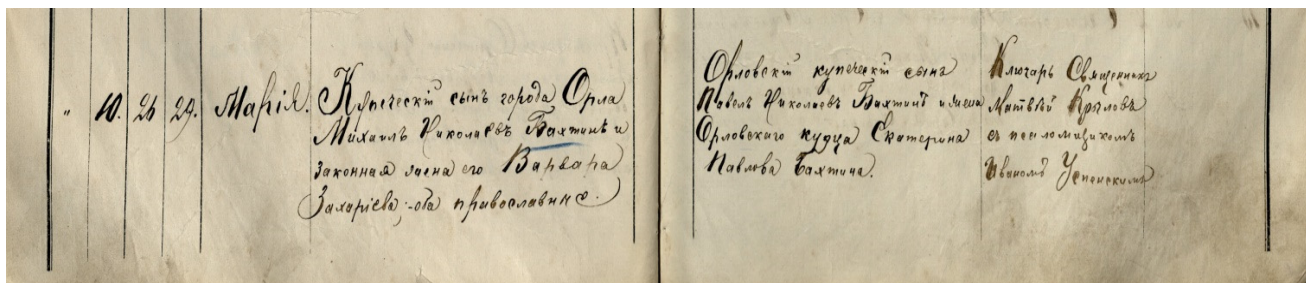 " 10. 26 29. Марія. Купеческій сынъ города Орла
Михаилъ Николаевъ Бахтинъ и
законная жена его Варвара
Захаріева; оба православные.
Орловскій купеческій сынъ
Павелъ Николаевъ Бахтинъ и жена
Орловскаго купца Екатерина
Павлова Бахтина.
Ключарь Священникъ
Матвѣй Крыловъ
съ псаломщикомъ
Иваномъ Успенскимъ